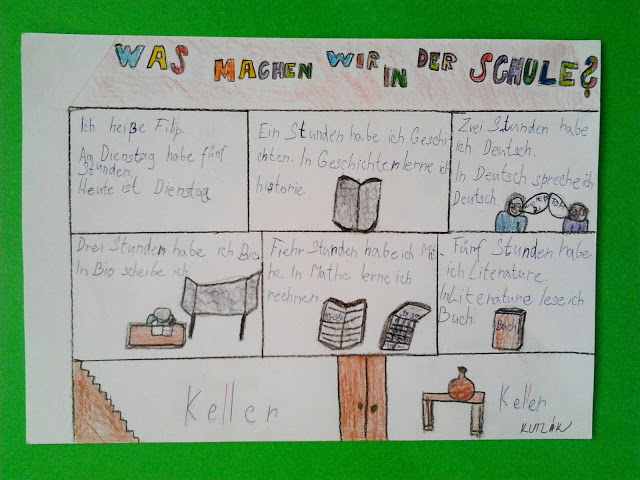 WAS MACHEN WIR IN DER SCHULE?
Ich heiße Filip.
Am Dienstag habe fünf
Stunden.
Heute ist Dienstag
Ein Stunden habe ich Geschi
chten. In Geschichten lerne ich
historie.
Zvei Stunden habe
ich Deutsch.
In Deutsch spreche ich
Deutsch.
Drei Stunden habe ich Bio.
In Bio scheibe ich
Fiehr Stunden habe ich Mat-
he. In Mathe lerne ich
rechnen.
Fünf Stunden habe
ich Literature.
In Literature lese ich
Buch.
Buch
Keller
Keller
KUTLÁK